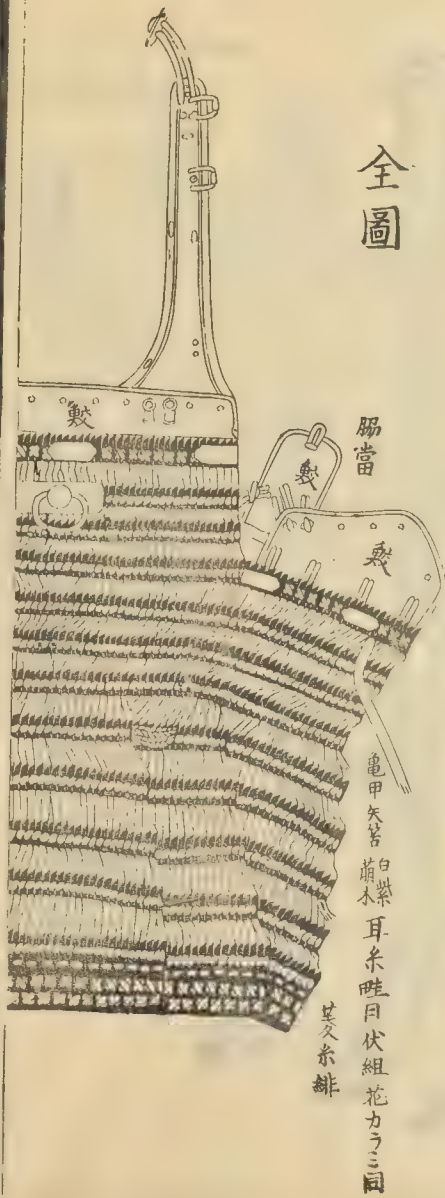 全圖
脇當
亀甲矢筈 白紫萌木 耳糸畦目伏組花カラミ同
菱糸緋